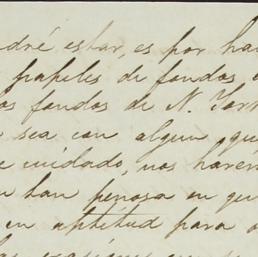 ndré estar, es por ha
papeles de fondos
os fondos de N. York
sea con algun qu
e cuidado, nos haren
n tan penosa en que
en aptitud para